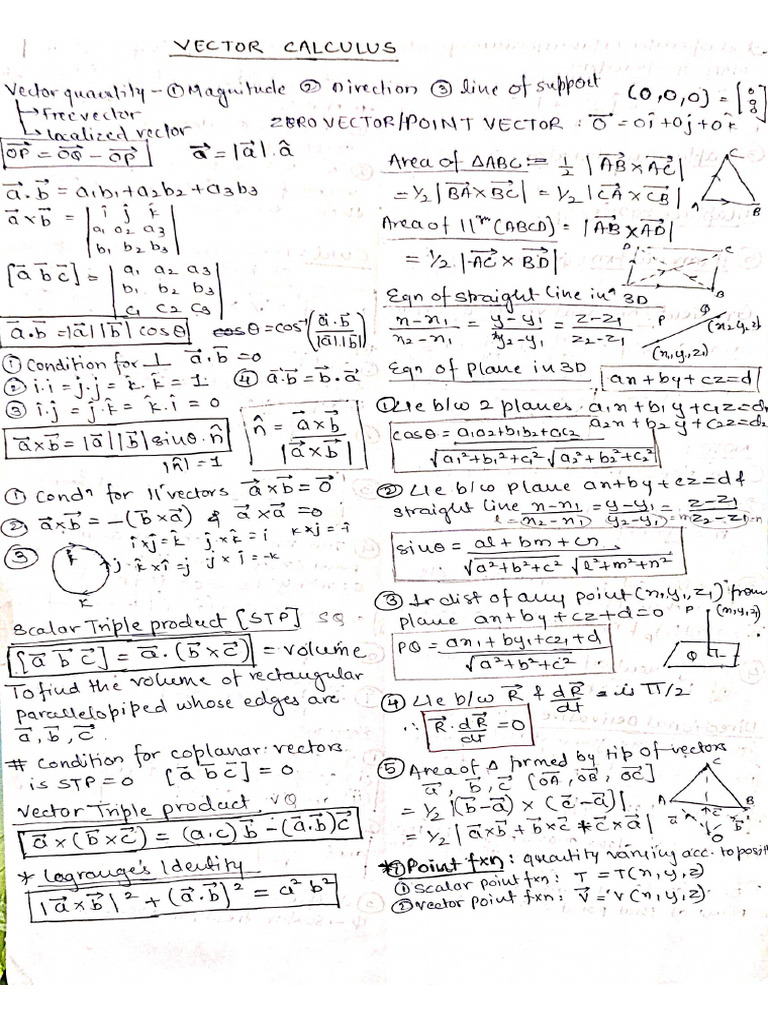 VECTOR CALCULUS
Vector quantity - ① Magnitude ② Direction ③ line of support
↳ Free vector
↳ Localized vector
(0,0,0) = [0 0 0]
ZERO VECTOR/POINT VECTOR : O⃗ = 0î+0ĵ+0k̂
OP⃗ = OQ⃗ - OP⃗    a⃗ = |a⃗|.â
a⃗.b⃗ = a₁b₁+a₂b₂+a₃b₃
a⃗×b⃗ = | î ĵ k̂ |
| a₁ a₂ a₃ |
| b₁ b₂ b₃ |
[a⃗ b⃗ c⃗] = | a₁ a₂ a₃ |
| b₁ b₂ b₃ |
| c₁ c₂ c₃ |
a⃗.b⃗ = |a⃗||b⃗|cosθ    cosθ = cos⁻¹(a⃗.b⃗ / |a⃗|.|b⃗|)
① Condition for ⊥ a⃗.b⃗ = 0
② i.i = j.j = k̂.k̂ = 1    ④ a⃗.b⃗ = b⃗.a⃗
③ i.j = j.k̂ = k̂.i = 0
a⃗×b⃗ = |a⃗||b⃗|sinθ.n̂    n̂ = a⃗×b⃗ / |a⃗×b⃗|
|n̂| = 1
① Condⁿ for ||ˡ vectors a⃗×b⃗ = O⃗
② a⃗×b⃗ = -(b⃗×a⃗) & a⃗×a⃗ = 0
③ î×ĵ = k̂ ĵ×î = k̂ k×j = -î
j. k̂×î = j j×î = -k
k
Scalar Triple product [STP] SQ
[a⃗ b⃗ c⃗] = a⃗.(b⃗×c⃗) = volume
To find the volume of rectangular
parallelopiped whose edges are
a⃗, b⃗, c⃗.
# Condition for coplanar vectors
is STP = 0 [a⃗ b⃗ c⃗] = 0
Vector Triple product VQ
a⃗×(b⃗×c⃗) = (a.c)b⃗-(a⃗.b⃗)c⃗
* Lagrange's Identity
|a⃗×b⃗|² + (a⃗.b⃗)² = a²b²
Area of ΔABC := ½ |AB⃗×AC⃗|
= ½|BA⃗×BC⃗| = ½|CA⃗×CB⃗|
C
A B
Area of ||ᵍᵐ(ABCD) = |AB⃗×AD⃗|
= ½.|AC⃗×BD⃗|
D C
B
Eqn of straight line in 3D
x-x₁/x₂-x₁ = y-y₁/y₂-y₁ = z-z₁/z₂-z₁
P Q
(x₂y₂z₂)
(x₁,y₁,z₁)
Eqn of Plane in 3D ax+by+cz=d
① ∠le b/w 2 planes a₁x+b₁y+c₁z=d₁
a₂x+b₂y+c₂z=d₂
cosθ = a₁a₂+b₁b₂+c₁c₂ / √a₁²+b₁²+c₁² √a₂²+b₂²+c₂²
② ∠le b/w plane ax+by+cz=d &
straight line x-x₁/l=x₂-x₁ = y-y₁/y₂-y₁=m = z-z₁/z₂-z₁=n
sinθ = al+bm+cn / √a²+b²+c² √l²+m²+n²
③ ⊥r dist of any point (x₁,y₁,z₁) from
plane ax+by+cz+d=0 P (x₁,y₁,z)
PQ = ax₁+by₁+cz₁+d / √a²+b²+c²
Q
④ ∠le b/w R⃗ & dR⃗/dt = is π/2
∴ R⃗.dR⃗/dt = 0
⑤ Area of Δ formed by tip of vectors
a⃗, b⃗, c⃗ [OA⃗, OB⃗, OC⃗]
= ½|(b⃗-a⃗)×(c⃗-a⃗)|
= ½|a⃗×b⃗+b⃗×c⃗+c⃗×a⃗|
A B
a⃗ c⃗ b⃗
O
* Point fxn: quantity varying acc. to positi
① Scalar point fxn: T = T(x,y,z)
② Vector point fxn: V⃗ = V(x,y,z)